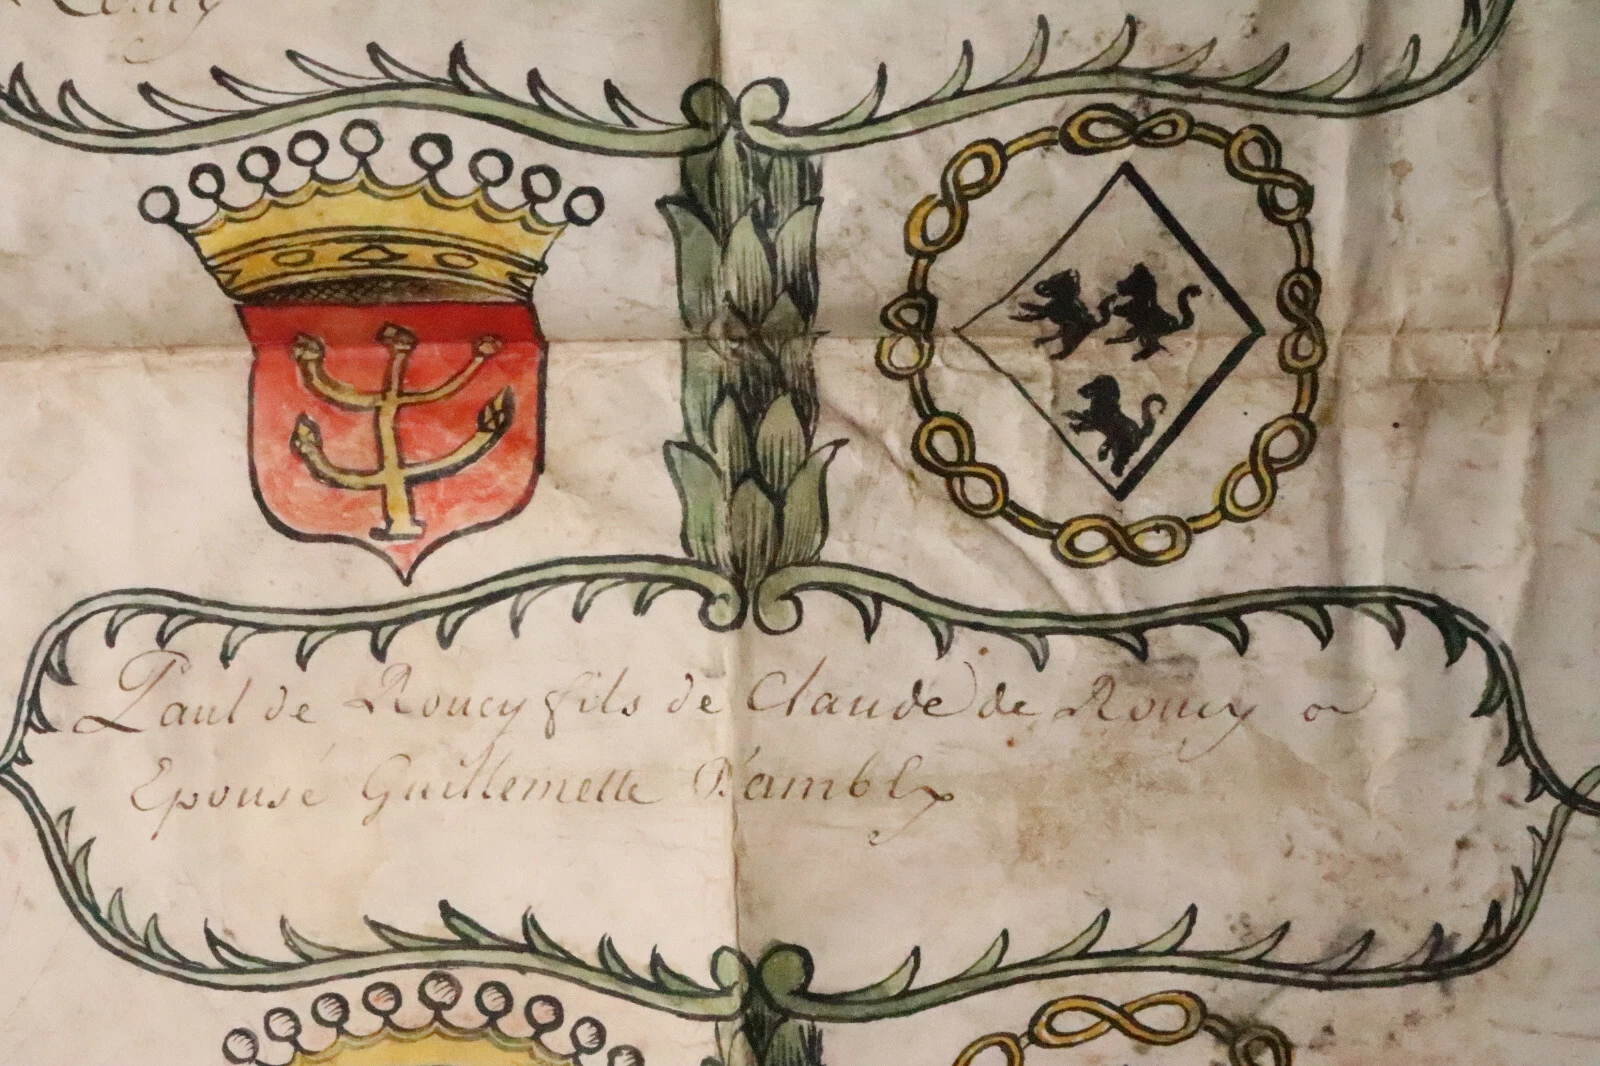 Roucy
Paul de Roucy fils de Claude de Roucy
Epousé Guillemette D'ambly